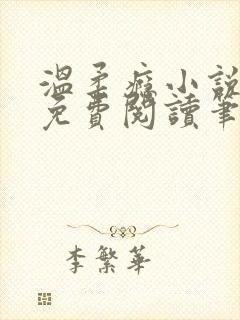 溫柔癮小說
免費閱讀筆
李繁華